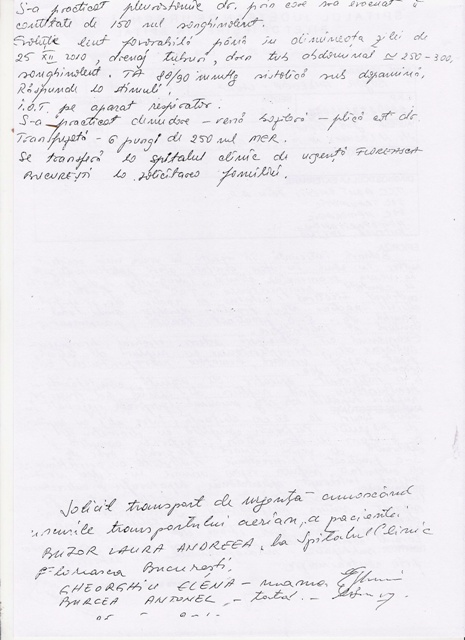 S-a practicat pleurostomie dr. prin care s-a evacuat o
cantitate de 150 ml sanghinolent.
Evoluție lent favorabilă până în dimineața zilei de
25 XII 2010, drenaj tuburi, dren tub abdominal ≃ 250-300,
sanghinolent. TA 80/90 mmHg sistolică sub dopamină,
Răspunde la stimuli,
I.O.T. pe aparat respirator.
S-a practicat denudare - venă - plică cot dr.
Transfuzată - 6 pungi de 250 ml MER.
Se transferă la spitalul clinic de urgență FLOREASCA
BUCUREȘTI la solicitarea familiei.
Solicit transport de urgență cunoscând
riscurile transportului aerian, a pacientei
BUZOR LAURA ANDREEA, la Spitalul Clinic
Floreasca București,
GHEORGHIU ELENA - mama
BURCEA ANTONEL, - tatăl -